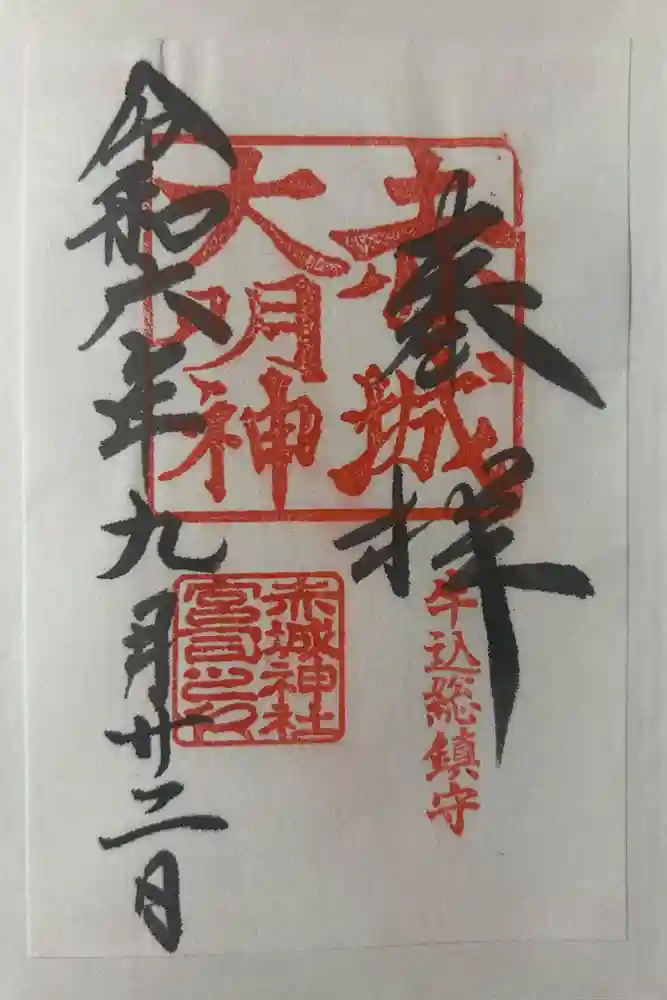 奉拝
赤城
大明神
牛込総鎮守
赤城神社
宮司之印
令和六年九月廿二日